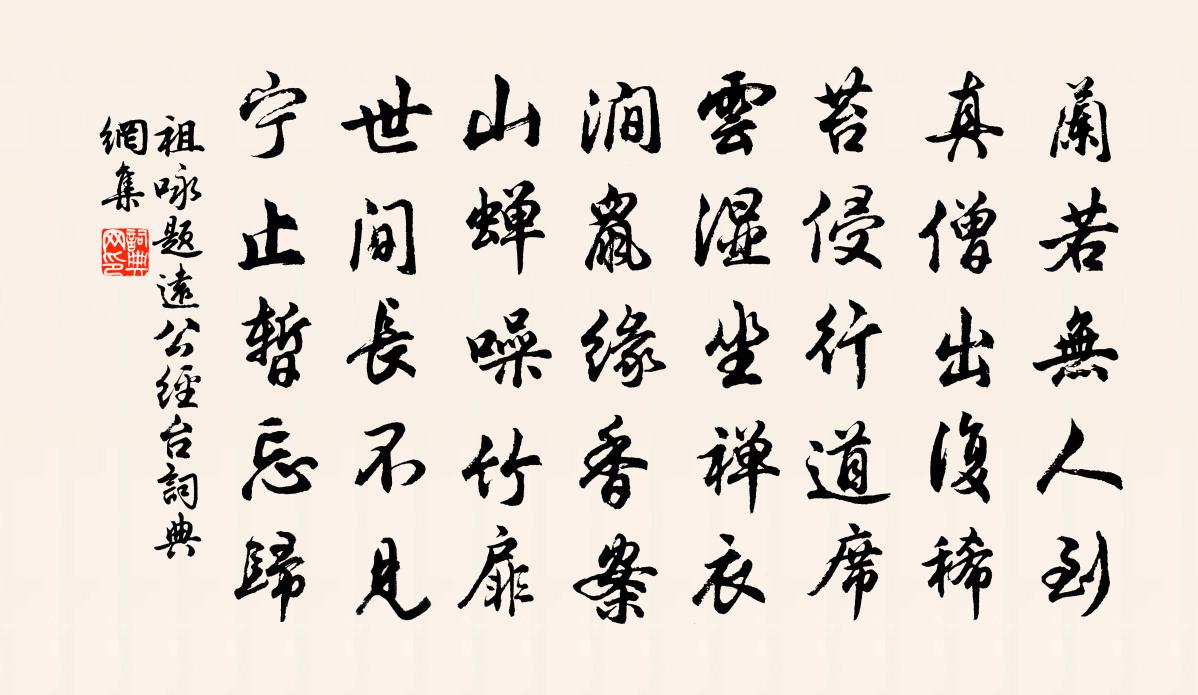 蘭若無人到
真僧出復稀
苔侵行道席
雲湿坐禅衣
澗鼠緣香案
山蝉噪竹扉
世间長不見
宁止暫忘歸
祖咏题遠公經台詞典
網集
詞典网印